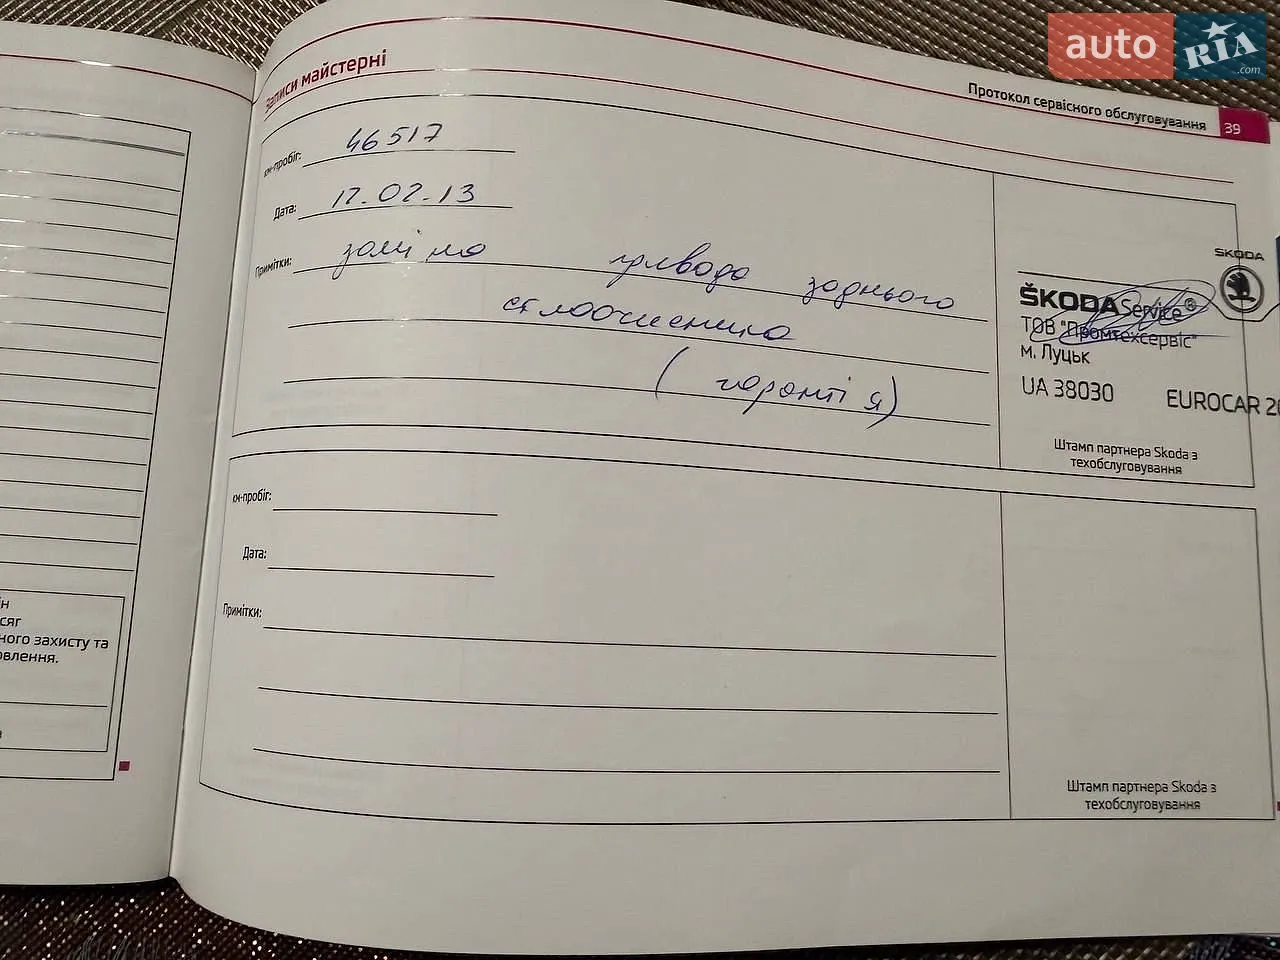 auto RIA .com
Записи майстерні
Протокол сервісного обслуговування 39
км-пробіг: 46517
Дата: 12.02.13
Примітки: заміна привода заднього
склоочисника
(гарантія)
ŠKODA
ŠKODA Service®
ТОВ "Промтехсервіс"
м. Луцьк
UA 38030 EUROCAR
Штамп партнера Skoda з
техобслуговування
км-пробіг:
Дата:
Примітки:
Штамп партнера Skoda з
техобслуговування
ного захисту та
овлення.